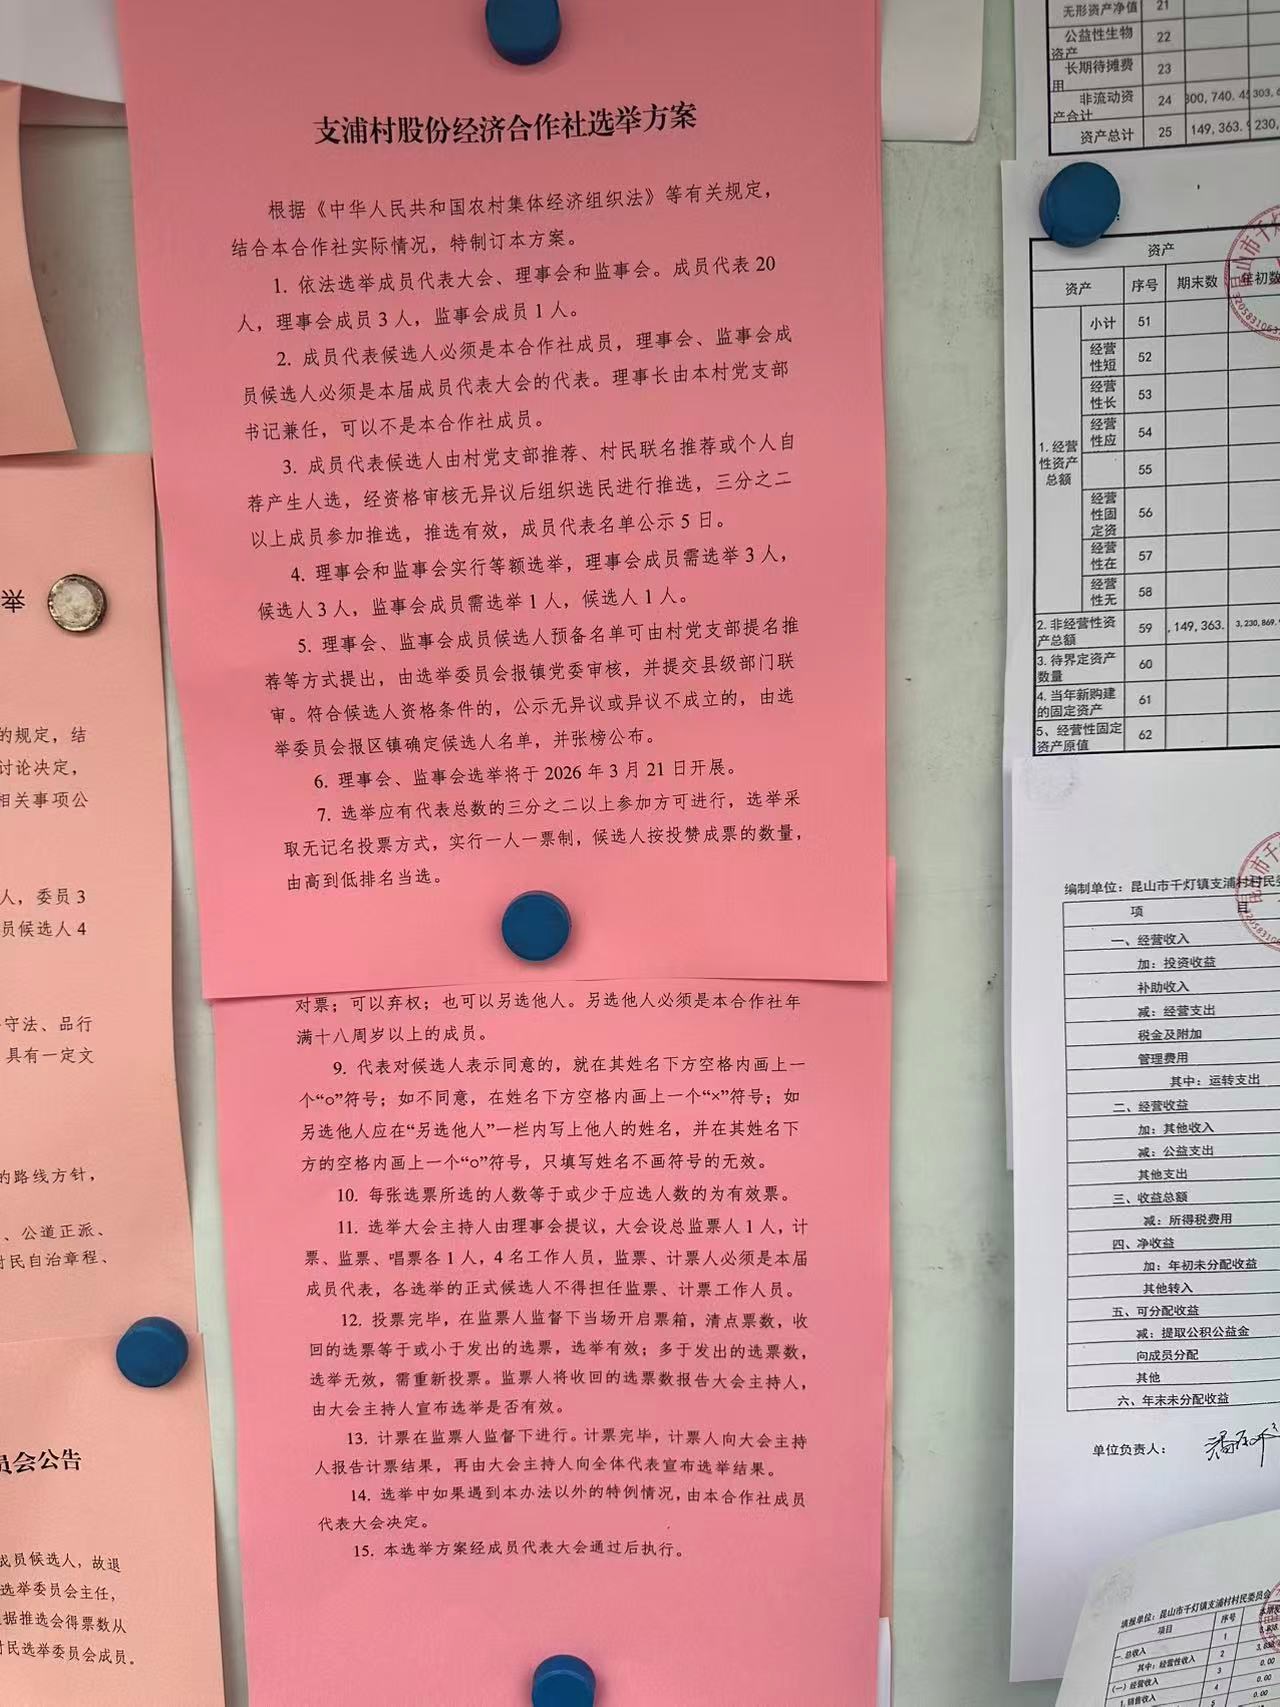 支浦村股份经济合作社选举方案
根据《中华人民共和国农村集体经济组织法》等有关规定，
结合本合作社实际情况，特制订本方案。
1. 依法选举成员代表大会、理事会和监事会。成员代表 20
人，理事会成员 3 人，监事会成员 1 人。
2. 成员代表候选人必须是本合作社成员，理事会、监事会成
员候选人必须是本届成员代表大会的代表。理事长由本村党支部
书记兼任，可以不是本合作社成员。
3. 成员代表候选人由村党支部推荐、村民联名推荐或个人自
荐产生人选，经资格审核无异议后组织选民进行推选，三分之二
以上成员参加推选，推选有效，成员代表名单公示 5 日。
4. 理事会和监事会实行等额选举，理事会成员需选举 3 人，
候选人 3 人，监事会成员需选举 1 人，候选人 1 人。
5. 理事会、监事会成员候选人预备名单可由村党支部提名推
荐等方式提出，由选举委员会报镇党委审核，并提交县级部门联
审。符合候选人资格条件的，公示无异议或异议不成立的，由选
举委员会报区镇确定候选人名单，并张榜公布。
6. 理事会、监事会选举将于 2026 年 3 月 21 日开展。
7. 选举应有代表总数的三分之二以上参加方可进行，选举采
取无记名投票方式，实行一人一票制，候选人按投赞成票的数量，
由高到低排名当选。
对票；可以弃权；也可以另选他人。另选他人必须是本合作社年
满十八周岁以上的成员。
9. 代表对候选人表示同意的，就在其姓名下方空格内画上一
个“○”符号；如不同意，在姓名下方空格内画上一个“×”符号；如
另选他人应在“另选他人”一栏内写上他人的姓名，并在其姓名下
方的空格内画上一个“○”符号，只填写姓名不画符号的无效。
10. 每张选票所选的人数等于或少于应选人数的为有效票。
11. 选举大会主持人由理事会提议，大会设总监票人 1 人，计
票、监票、唱票各 1 人，4 名工作人员，监票、计票人必须是本届
成员代表，各选举的正式候选人不得担任监票、计票工作人员。
12. 投票完毕，在监票人监督下当场开启票箱，清点票数，收
回的选票等于或小于发出的选票，选举有效；多于发出的选票数，
选举无效，需重新投票。监票人将收回的选票数报告大会主持人，
由大会主持人宣布选举是否有效。
13. 计票在监票人监督下进行。计票完毕，计票人向大会主持
人报告计票结果，再由大会主持人向全体代表宣布选举结果。
14. 选举中如果遇到本办法以外的特例情况，由本合作社成员
代表大会决定。
15. 本选举方案经成员代表大会通过后执行。
举
的规定，结
讨论决定，
相关事项公
人，委员 3
员候选人 4
守法、品行
具有一定文
的路线方针，
、公道正派、
村民自治章程、
员会公告
成员候选人，故退
选举委员会主任，
据推选会得票数从
村民选举委员会成员。
无形资产净值 21
公益性生物资产 22
长期待摊费用 23
非流动资产合计 24
资产总计 25 149,363.
资产
资产 序号 期末数 年初数
1. 经营性资产总额
小计 51
经营性短 52
经营性长 53
经营性应 54
55
经营性固定资 56
经营性在 57
经营性无 58
2. 非经营性资产总额 59 ,149,363. 3,230,869.
3. 待界定资产数量 60
4. 当年新购建的固定资产 61
5、经营性固定资产原值 62
编制单位：昆山市千灯镇支浦村村民委
项 目
一、经营收入
加：投资收益
补助收入
减：经营支出
税金及附加
管理费用
其中：运转支出
二、经营收益
加：其他收入
减：公益支出
其他支出
三、收益总额
减：所得税费用
四、净收益
加：年初未分配收益
其他转入
五、可分配收益
减：提取公积公益金
向成员分配
其他
六、年末未分配收益
单位负责人：
填报单位：昆山市千灯镇支浦村村民委员会
项目 序号
一.总收入 1
其中：经营性收入 2
(一)经营收入 3 0.00
1.销售收入 4 0.00